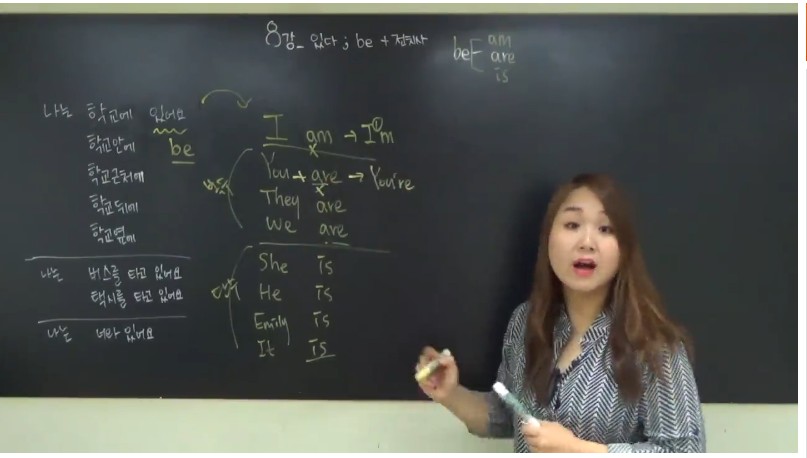 8강_ 있다 ; be + 전치사
be am
are
is
나는 학교에 있어요
be
학교안에
학교근처에
학교뒤에
학교옆에
나는 버스를 타고 있어요
택시를 타고 있어요
나는 너랑 있어요
I am → I'm
You + are → You're
They are
We are
She is
He is
Emily is
It is